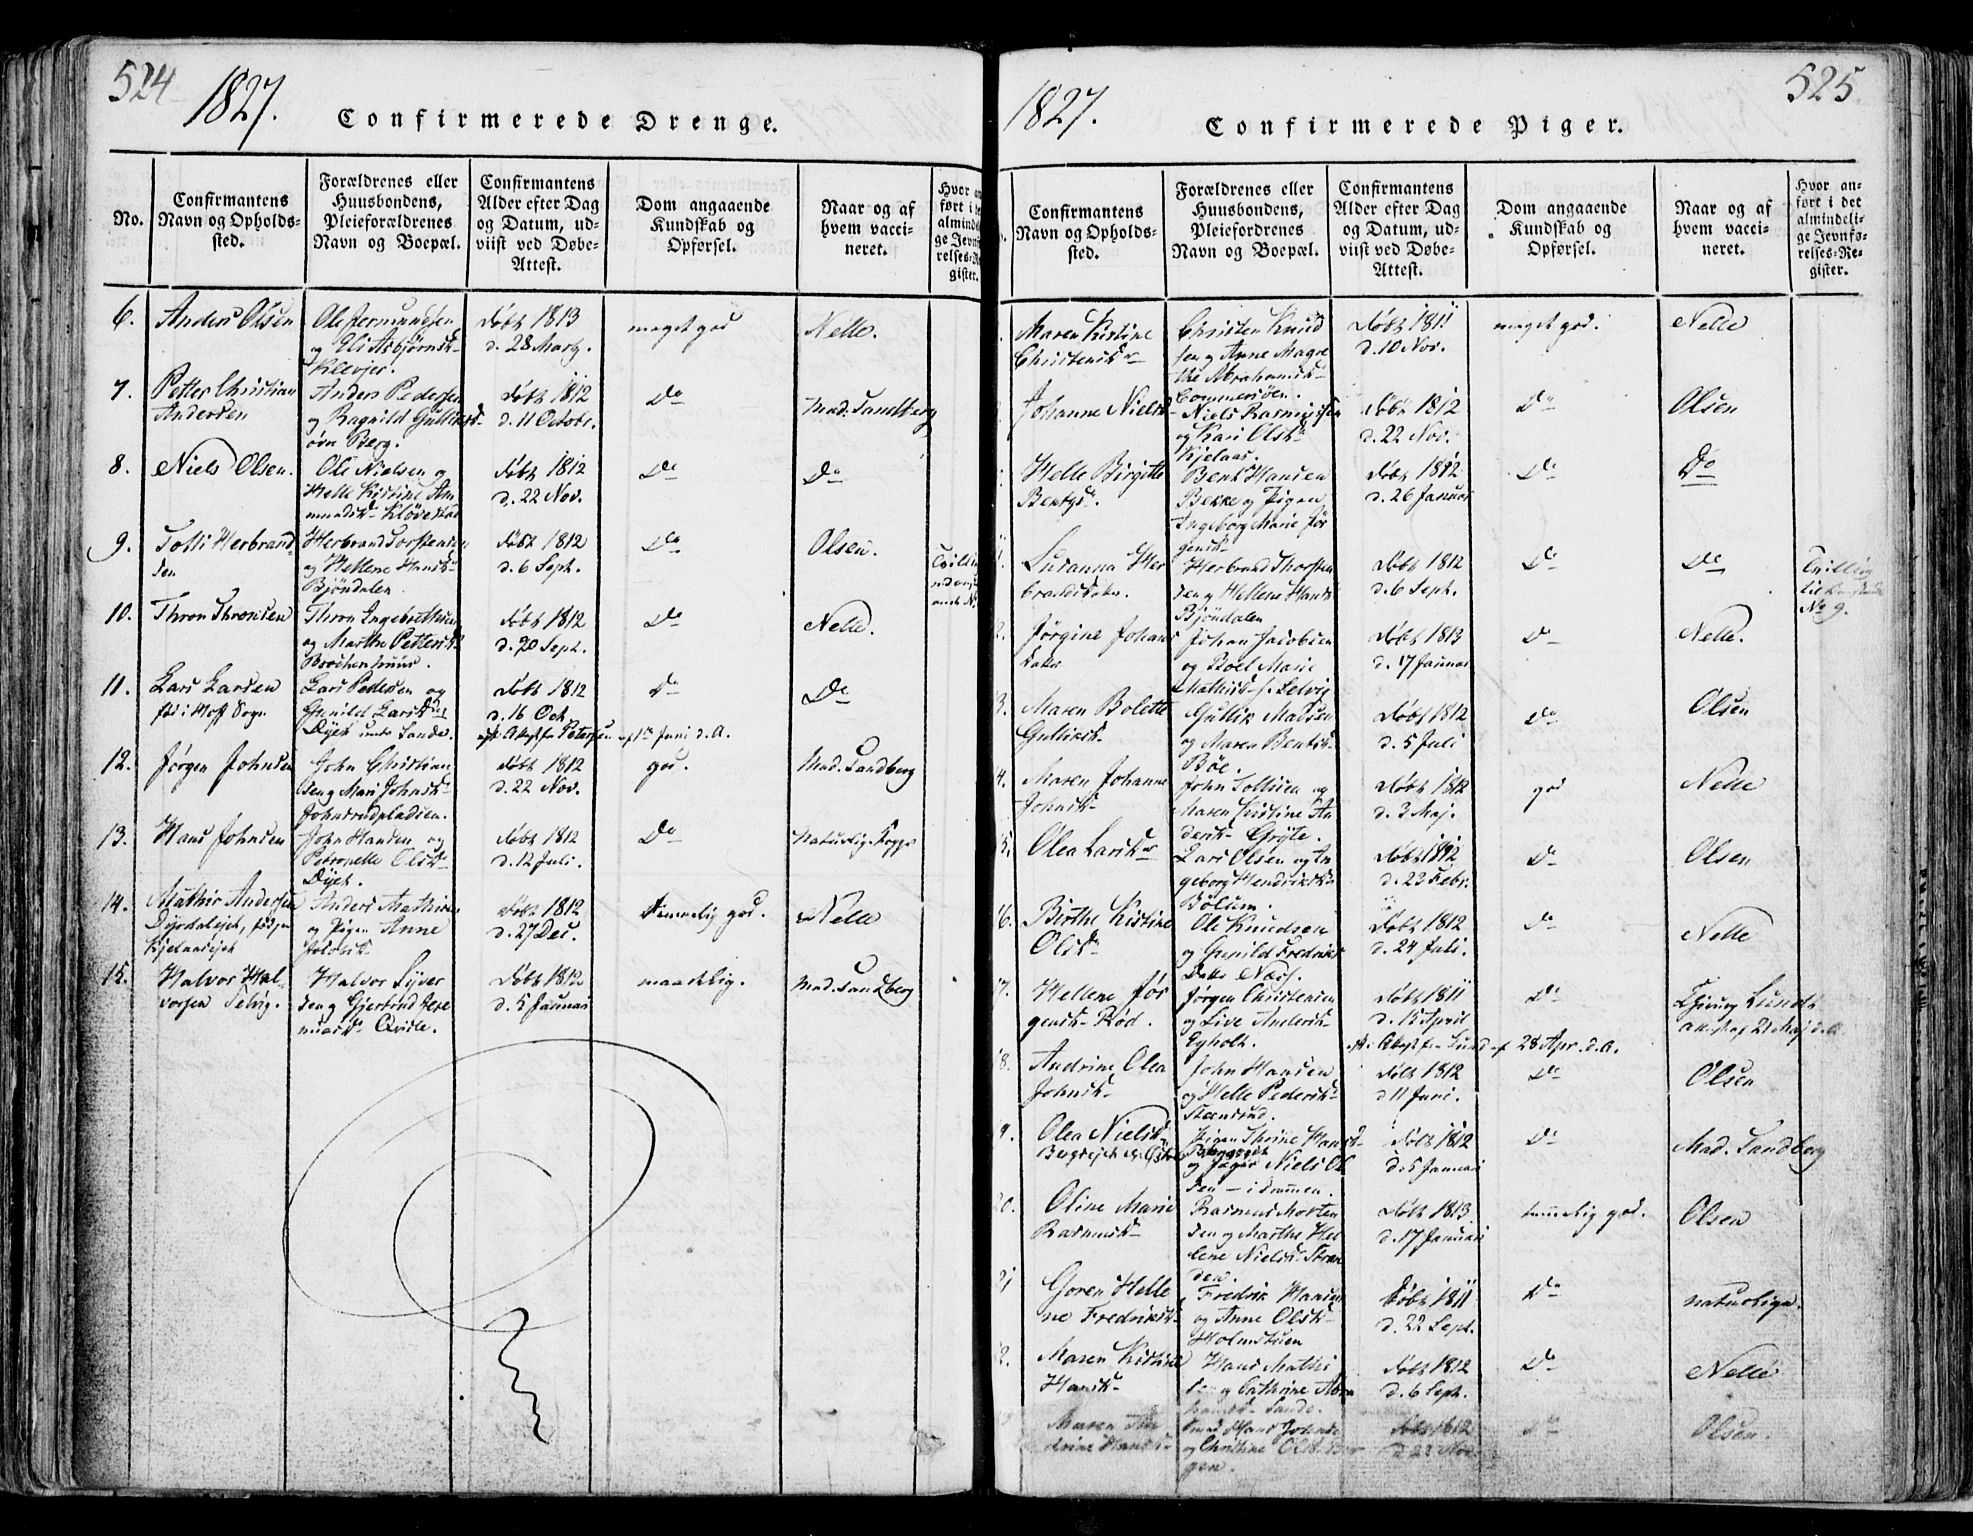 524
1827.
Confirmerede Drenge.
No.
Confirmantens
Navn og Opholds-
sted.
Forældrenes eller
Huusbondens,
Pleieforældrenes
Navn og Boepæl.
Confirmantens
Alder efter Dag
og Datum, ud-
viist ved Døbe-
Attest.
Dom angaaende
Kundskab og
Opførsel.
Naar og af
hvem vacci-
neret.
6.
Anders Olsen
Klevjer.
døbt 1813
d. 28 Marty.
meget god
Nelle.
7.
Petter Christian
Andersen
Anders Pedersen
og Ragnild Gulliksd-
øvre Berg.
døbt 1812
d. 11 Octobr.
Do
Mad. Sandberg
8.
Niels Olsen.
Ole Nielsen og
Helle Kirstine Am-
mundsd- Kløvestad
døbt 1812
d. 22 Nov.
Do
Do
9.
Tolli Herbrand-
sen
Herbrand Torstensen
og Hellene Hansd-
Bjöndalen
døbt 1812
d. 6 Sept.
Do
Olsen.
10.
Thron Thronsen
Thron Ingebrettsen
og Marthe Pettersd-
døbt 1812
d. 20 Sept.
Do
Nelle.
11.
Lars Larsen
fød i Hoff Sogn
Lars Pedersen og
Gunild Larsd-
døbt 1812
d. 16 Oct.
Juni d. A.
Do
Do
12.
Jørgen Johnsen
John Christian-
sen og Mari Johnsd-
Johnsrudpladsen.
døbt 1812
d. 22 Nov.
god.
Mad. Sandberg
13.
Hans Johnsen
John Hansen og
Petronelle Olsd-
døbt 1812
d. 12 Juli.
Do
Naturlig. Kopper
14.
Mathis Andersen
Anders Mathisen
og Pigen Anne
døbt 1812
d. 27 Dec.
temmelig god.
Nelle
15.
Halvor Hal-
vorsen Selvig.
Halvor Syver-
sen og Gjertrud
døbt 1812
d. 5 Januar
maadelig.
Mad. Sandberg
525
1827.
Confirmerede Piger.
Confirmantens
Navn og Opholds-
sted.
Forældrenes eller
Huusbondens,
Pleiefordrenes
Navn og Boepæl.
Confirmantens
Alder efter Dag
og Datum, ud-
viist ved Døbe-
Attest.
Dom angaaende
Kundskab og
Opførsel.
Naar og af
hvem vacci-
neret.
Hvor an-
ført i det
almindeli-
ge Jevnfø-
relses-Re-
gister.
Maren Kirstine
Christensdr
Christen Knud-
sen og Anne Magre-
the Abrahamsd-
Commersöen.
døbt 1811
d. 10 Nov.
meget god.
Nelle
Johanne Nielsd-
Niels Rasmussen
og Kari Olsd-
Kjelaas.
døbt 1812
d. 22 Nov.
Do
Olsen
Helle Birgitte
Bentsd.
Bent Hansen
Bekke og Pigen
Ingeborg Marie Jør-
gensd-
døbt 1812
d. 26 Januar
Do
Do
Susanna Her-
brandsdatr.
Herbrand Thorsten-
sen og Hellene Hansd
Bjöndalen
døbt 1812
d. 6 Sept.
Do
Do
Tvilling
til
No 9.
Jørgine Johans-
datter
Johan Jacobsen
og Boel Marie
Mathisd- Selvig
døbt 1813
d. 17 Januar
Do
Nelle.
3.
Maren Bolette
Gulliksd-
Gullik Madsen
og Maren Bentsd-
Böe.
døbt 1812
d. 5 Juli
Do
Olsen
4.
Maren Johanne
Johnsd-
John Tollisen og
Maren Kirstine An-
dersd- Grøte.
døbt 1812
d. 3 Maj.
god
Nelle
5.
Olea Larsdr
Lars Olsen og In-
geborg Hendriksd-
Bölum.
døbt 1812
d. 23 Febr.
Do
Olsen
6.
Birthe Kirstine
Olsd-
Ole Knudsen
og Gunild Fredriks-
Datter Næss.
døbt 1812
d. 24 Juli.
Do
Nelle
7.
Hellene Jør-
gensd- Röd.
Jørgen Christensen
og Live Andersd-
Egholt.
døbt 1811
d. 15 April
28 Apr. d. A.
Do
Lundt
21 Maj d. A.
8.
Andrine Olea
Johnsd-
John Hansen
og Helle Pedersd-
Steensrud.
døbt 1812
d 11 Juni.
Do
Olsen
9.
Olea Nielsd-
Pigen Thrine Hansd-
og Jæger Niels Ol-
sen - i Drammen.
døbt 1812
d. 5 Januari
Do
Mad. Sandberg
20.
Oline Marie
Rasmusd-
Rasmus Morten-
sen og Marthe Hel-
lene Nielsd- Stran-
den.
døbt 1813
d. 17 Januari
temmelig god.
Olsen
21
Goren Helle-
ne Fredriksd-
Fredrik Hansen
og Anne Olsd-
Holmstuen
døbt 1811
d. 22 Sept.
Do
naturliga.
2.
Maren Kirstine
Hansd-
Hans Mathis-
sen og Cathrine Abra-
hamsd- Sande.
døbt 1812
d. 6 Sept.
Do
Nelle
Maren
drine Hansd-
Hans Johnsen
og Christine Olsd
døbt 1812
d 22 Nov.
Do
Olsen.